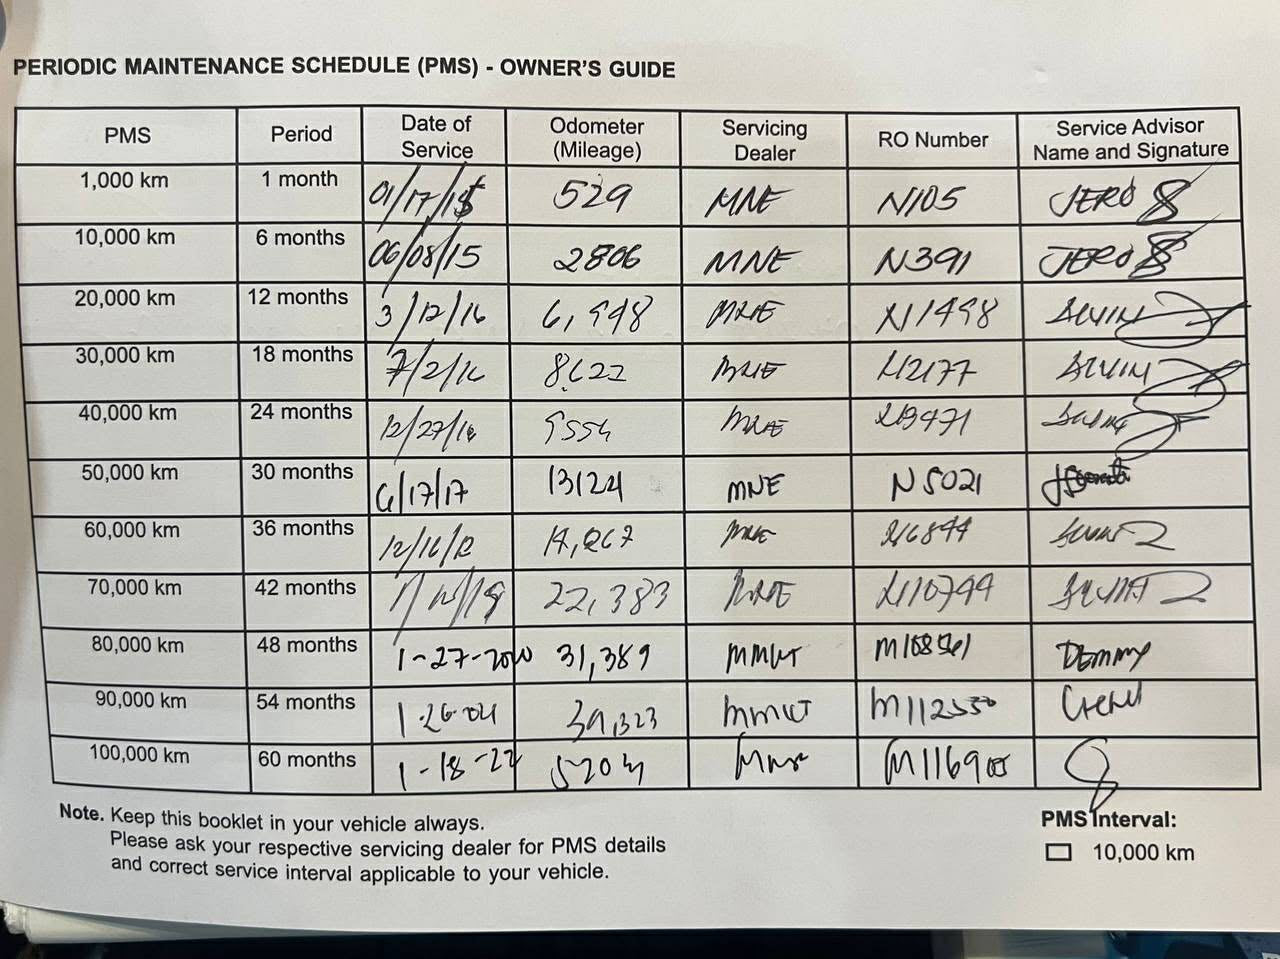 PERIODIC MAINTENANCE SCHEDULE (PMS) - OWNER'S GUIDE
PMS Period Date of Service Odometer (Mileage) Servicing Dealer RO Number Service Advisor Name and Signature
1,000 km 1 month 01/17/15 529 MNE N105 JERO
10,000 km 6 months 06/08/15 2806 MNE N391 JERO
20,000 km 12 months 3/12/16 6,948 MNE N1498 ALVIN
30,000 km 18 months 7/2/16 8622 MNE N2177 ALVIN
40,000 km 24 months 12/27/16 9554 MNE N3471 ALVIN
50,000 km 30 months 6/17/17 13124 MNE N5021
60,000 km 36 months MNE
70,000 km 42 months 22,383 MNE N10799
80,000 km 48 months 1-27-2020 31,389 MMKT M108561 DEMMY
90,000 km 54 months 39,323 MMKT M112550
100,000 km 60 months 1-18-22 M116905
Note. Keep this booklet in your vehicle always.
Please ask your respective servicing dealer for PMS details
and correct service interval applicable to your vehicle.
PMS Interval:
10,000 km